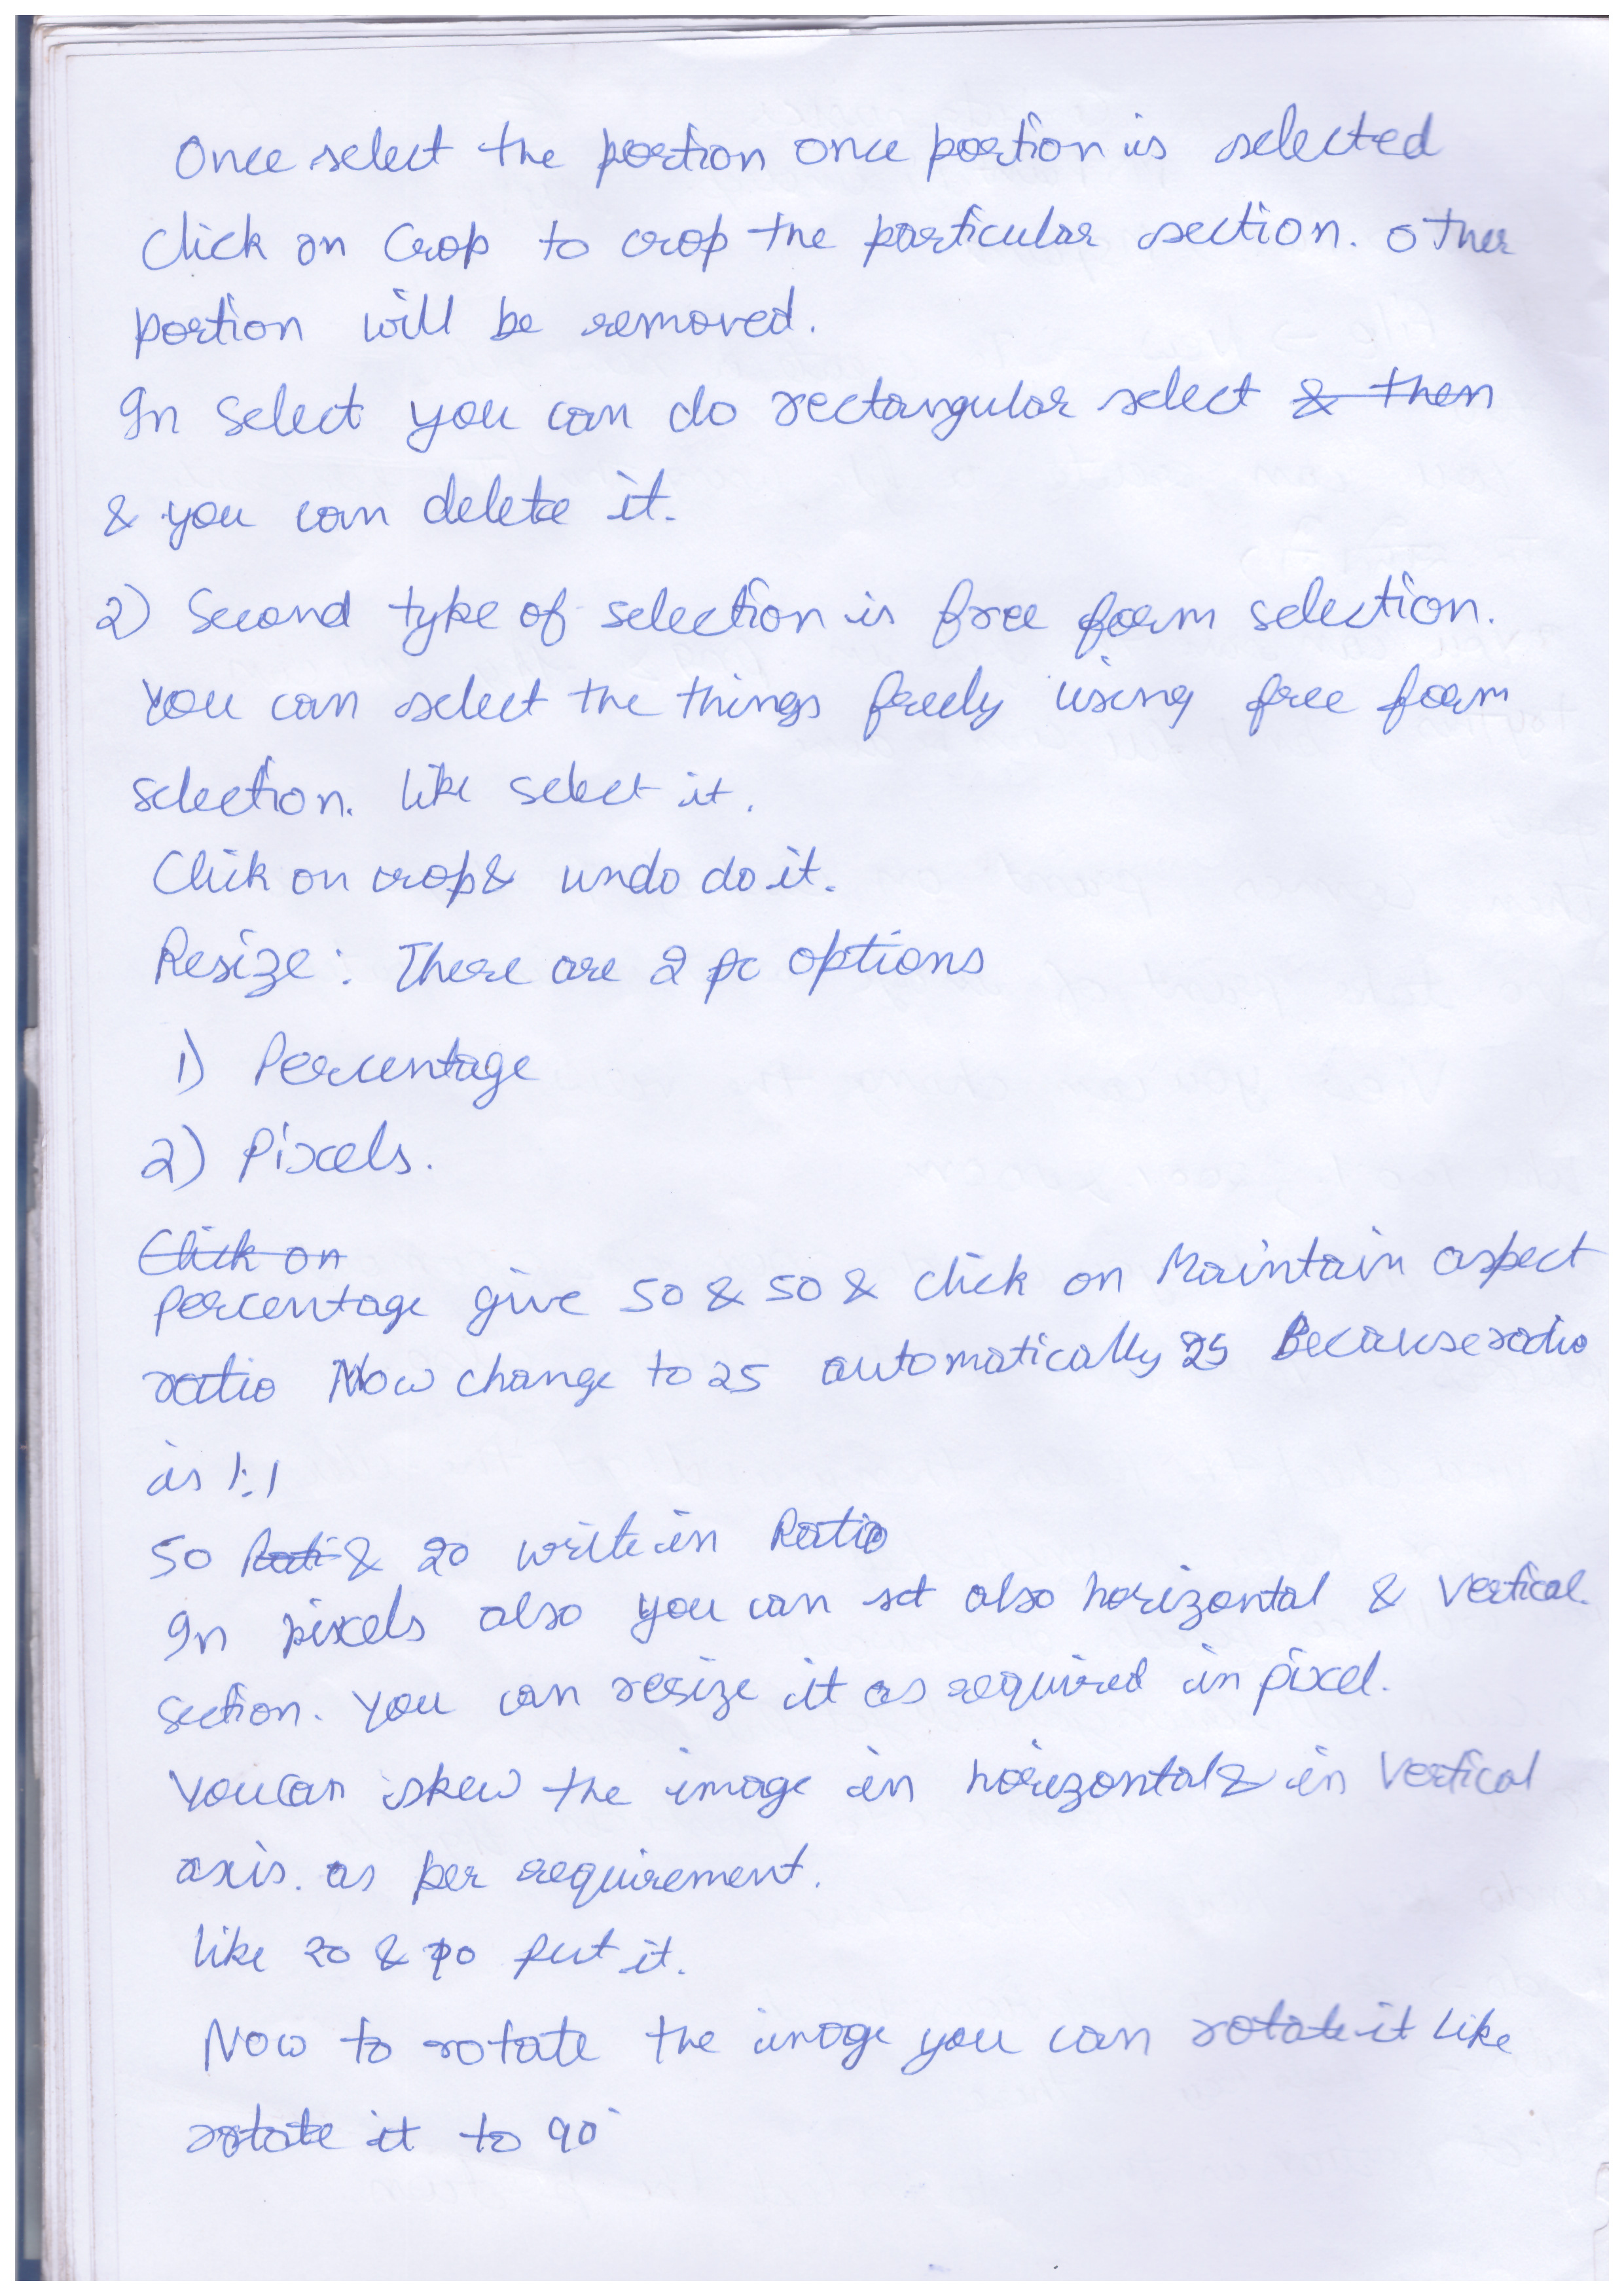 Once select the portion once portion is selected
Click on Crop to crop the particular section. Other
portion will be removed.
In select you can do rectangular select & then
& you can delete it.
2) Second type of selection is free form selection.
You can select the things freely using free form
selection. like select it.
Click on crop & undo do it.
Resize : There are 2 pc options
1) Percentage
2) Pixels.
Click on
percentage give 50 & 50 & click on Maintain aspect
ratio Now change to 25 automatically 25 Because ratio
is 1:1
50 Rati & 20 write in Ratio
In pixels also you can set also horizontal & vertical.
section. You can resize it as required in pixel.
You can skew the image in horizontal & in vertical
axis. as per requirement.
like 20 & put it.
Now to rotate the image you can rotate it like
rotate it to 90°